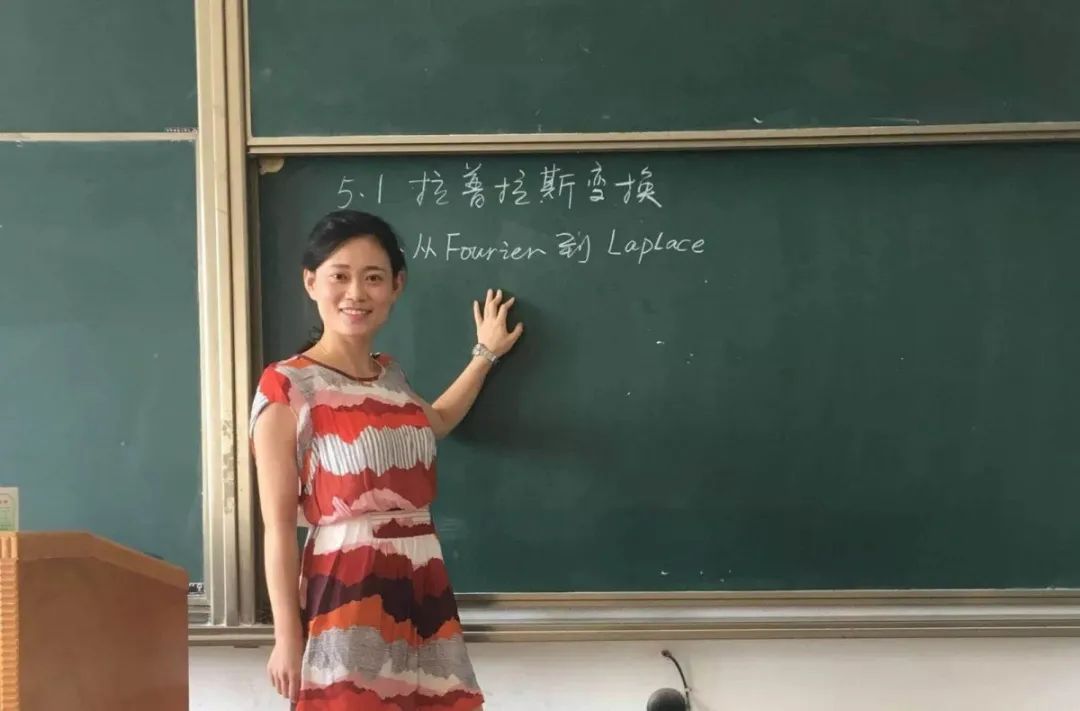 5.1 拉普拉斯变换
从Fourier到 Laplace